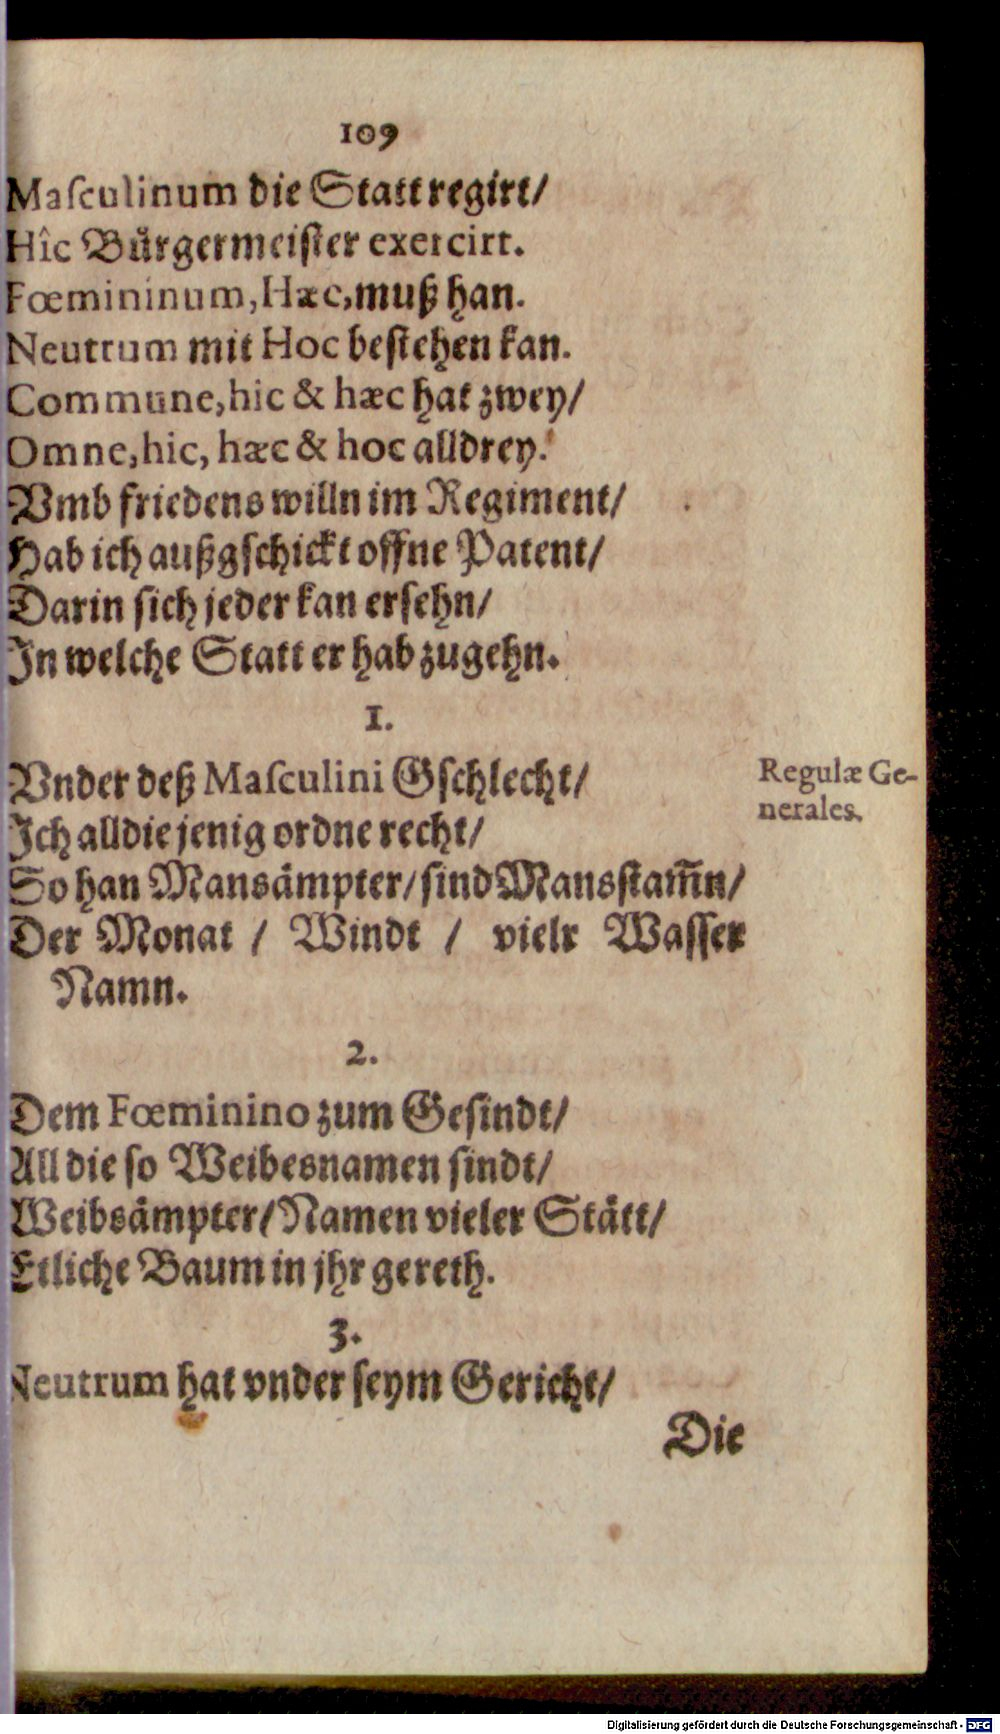 109
Maſculinum die Statt regirt/
Hîc Bůrgermeiſter exercirt.
Fœmininum, Hæc, muß han.
Neutrum mit Hoc beſtehen kan.
Commune, hic & hæc hat zwey/
Omne, hic, hæc & hoc alldrey.
Vmb friedens willn im Regiment/
Hab ich außgſchickt offne Patent/
Darin ſich jeder kan erſehn/
In welche Statt er hab zugehn.
1.
Vnder deß Maſculini Gſchlecht/
Regulæ Ge-
nerales.
Ich alldie jenig ordne recht/
So han Mansämpter/ ſind Mansſtam̃n/
Der Monat / Windt / vielr Waſſer
Namn.
2.
Dem Fœminino zum Geſindt/
All die ſo Weibesnamen ſindt/
Weibsämpter/ Namen vieler Stätt/
Etliche Baum in jhr gereth.
3.
Neutrum hat vnder ſeym Gericht/
Die
Digitalisierung gefördert durch die Deutsche Forschungsgemeinschaft - DFG